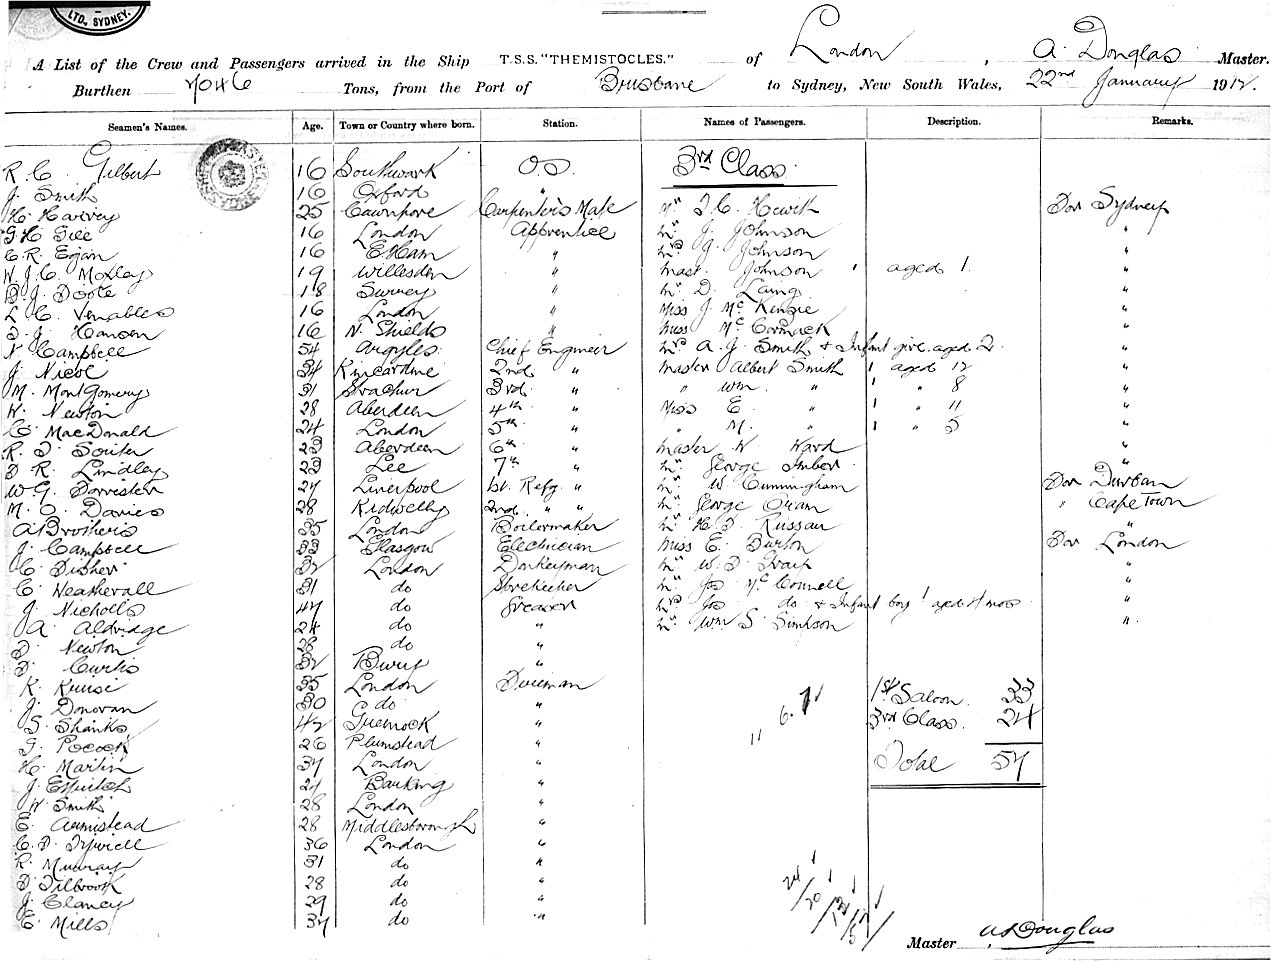 LTD., SYDNEY.
A List of the Crew and Passengers arrived in the Ship T.S.S. "THEMISTOCLES." of London, A. Douglas Master.
Burthen 7046 Tons, from the Port of Brisbane to Sydney, New South Wales, 22nd January 1912.
Seamen's Names. Age. Town or Country where born. Station. Names of Passengers. Description. Remarks.
R. C. Gilbert 16 Southwark O.S. 3rd Class
J. Smith 16 Oxford "
H. Harvey 25 Cawnpore Carpenter's Mate Mr T. C. Hewith For Sydney
G. H. Gill 16 London Apprentice Mr J. Johnson "
C. R. Egan 16 E. Ham " Mrs J. Johnson "
W. J. C. Moxley 19 Willesden " Mast. Johnson 1 aged 1 "
B. J. Doote 18 Surrey " Mr D. Laing "
L. C. Venables 16 London " Miss J. McKenzie "
J. Hansen 16 N. Shields " Miss McCormack "
N. Campbell 54 Argyles Chief Engineer Mrs A. J. Smith & Infant girl aged 2 "
J. Nicol 34 Kincardine 2nd " Master Albert Smith 1 aged 12 "
M. Montgomery 31 Strachur 3rd " " Wm. " 1 " 8 "
W. Newton 28 Aberdeen 4th " Miss E. " 1 " 11 "
C. MacDonald 24 London 5th " " M. " 1 " 5 "
R. Souter 23 Aberdeen 6th " Master W. Ward "
R. Lindley 23 Lee 7th " Mr George Imber "
W. G. Forrester 27 Liverpool 1st. Refg. " Mr W. Cunningham For Durban
M. O. Davies 28 Kidwelly 2nd " " Mr George Oram " Cape Town
A. Brothers 35 London Boilermaker Mr H. Russau "
J. Campbell 33 Glasgow Electrician Miss E. Burton For London
C. Fisher 32 London Donkeyman Mr W. "
C. Weatherall 31 do Storekeeper Mr Jos McConnell "
J. Nicholls 47 do Greaser Mrs Jos do & Infant boy 1 aged 4 mos "
A. Aldridge 24 do " Mr Wm S. Simpson "
Newton 28 do "
Curtis 32 "
K. Kruise 35 London Fireman 1st Saloon 33
J. Donovan 30 do " 3rd Class 24
S. Shanks 42 Greenock "
G. Pocock 26 Plumstead " Total 57
H. Martin 37 London "
J. 27 Barking "
W. Smith 28 London "
E. Armistead 28 Middlesborough "
C. 36 London "
R. Murray 31 do "
Tilbrook 28 do "
J. Clancy 29 do "
E. Mills 37 do "
Master A. Douglas